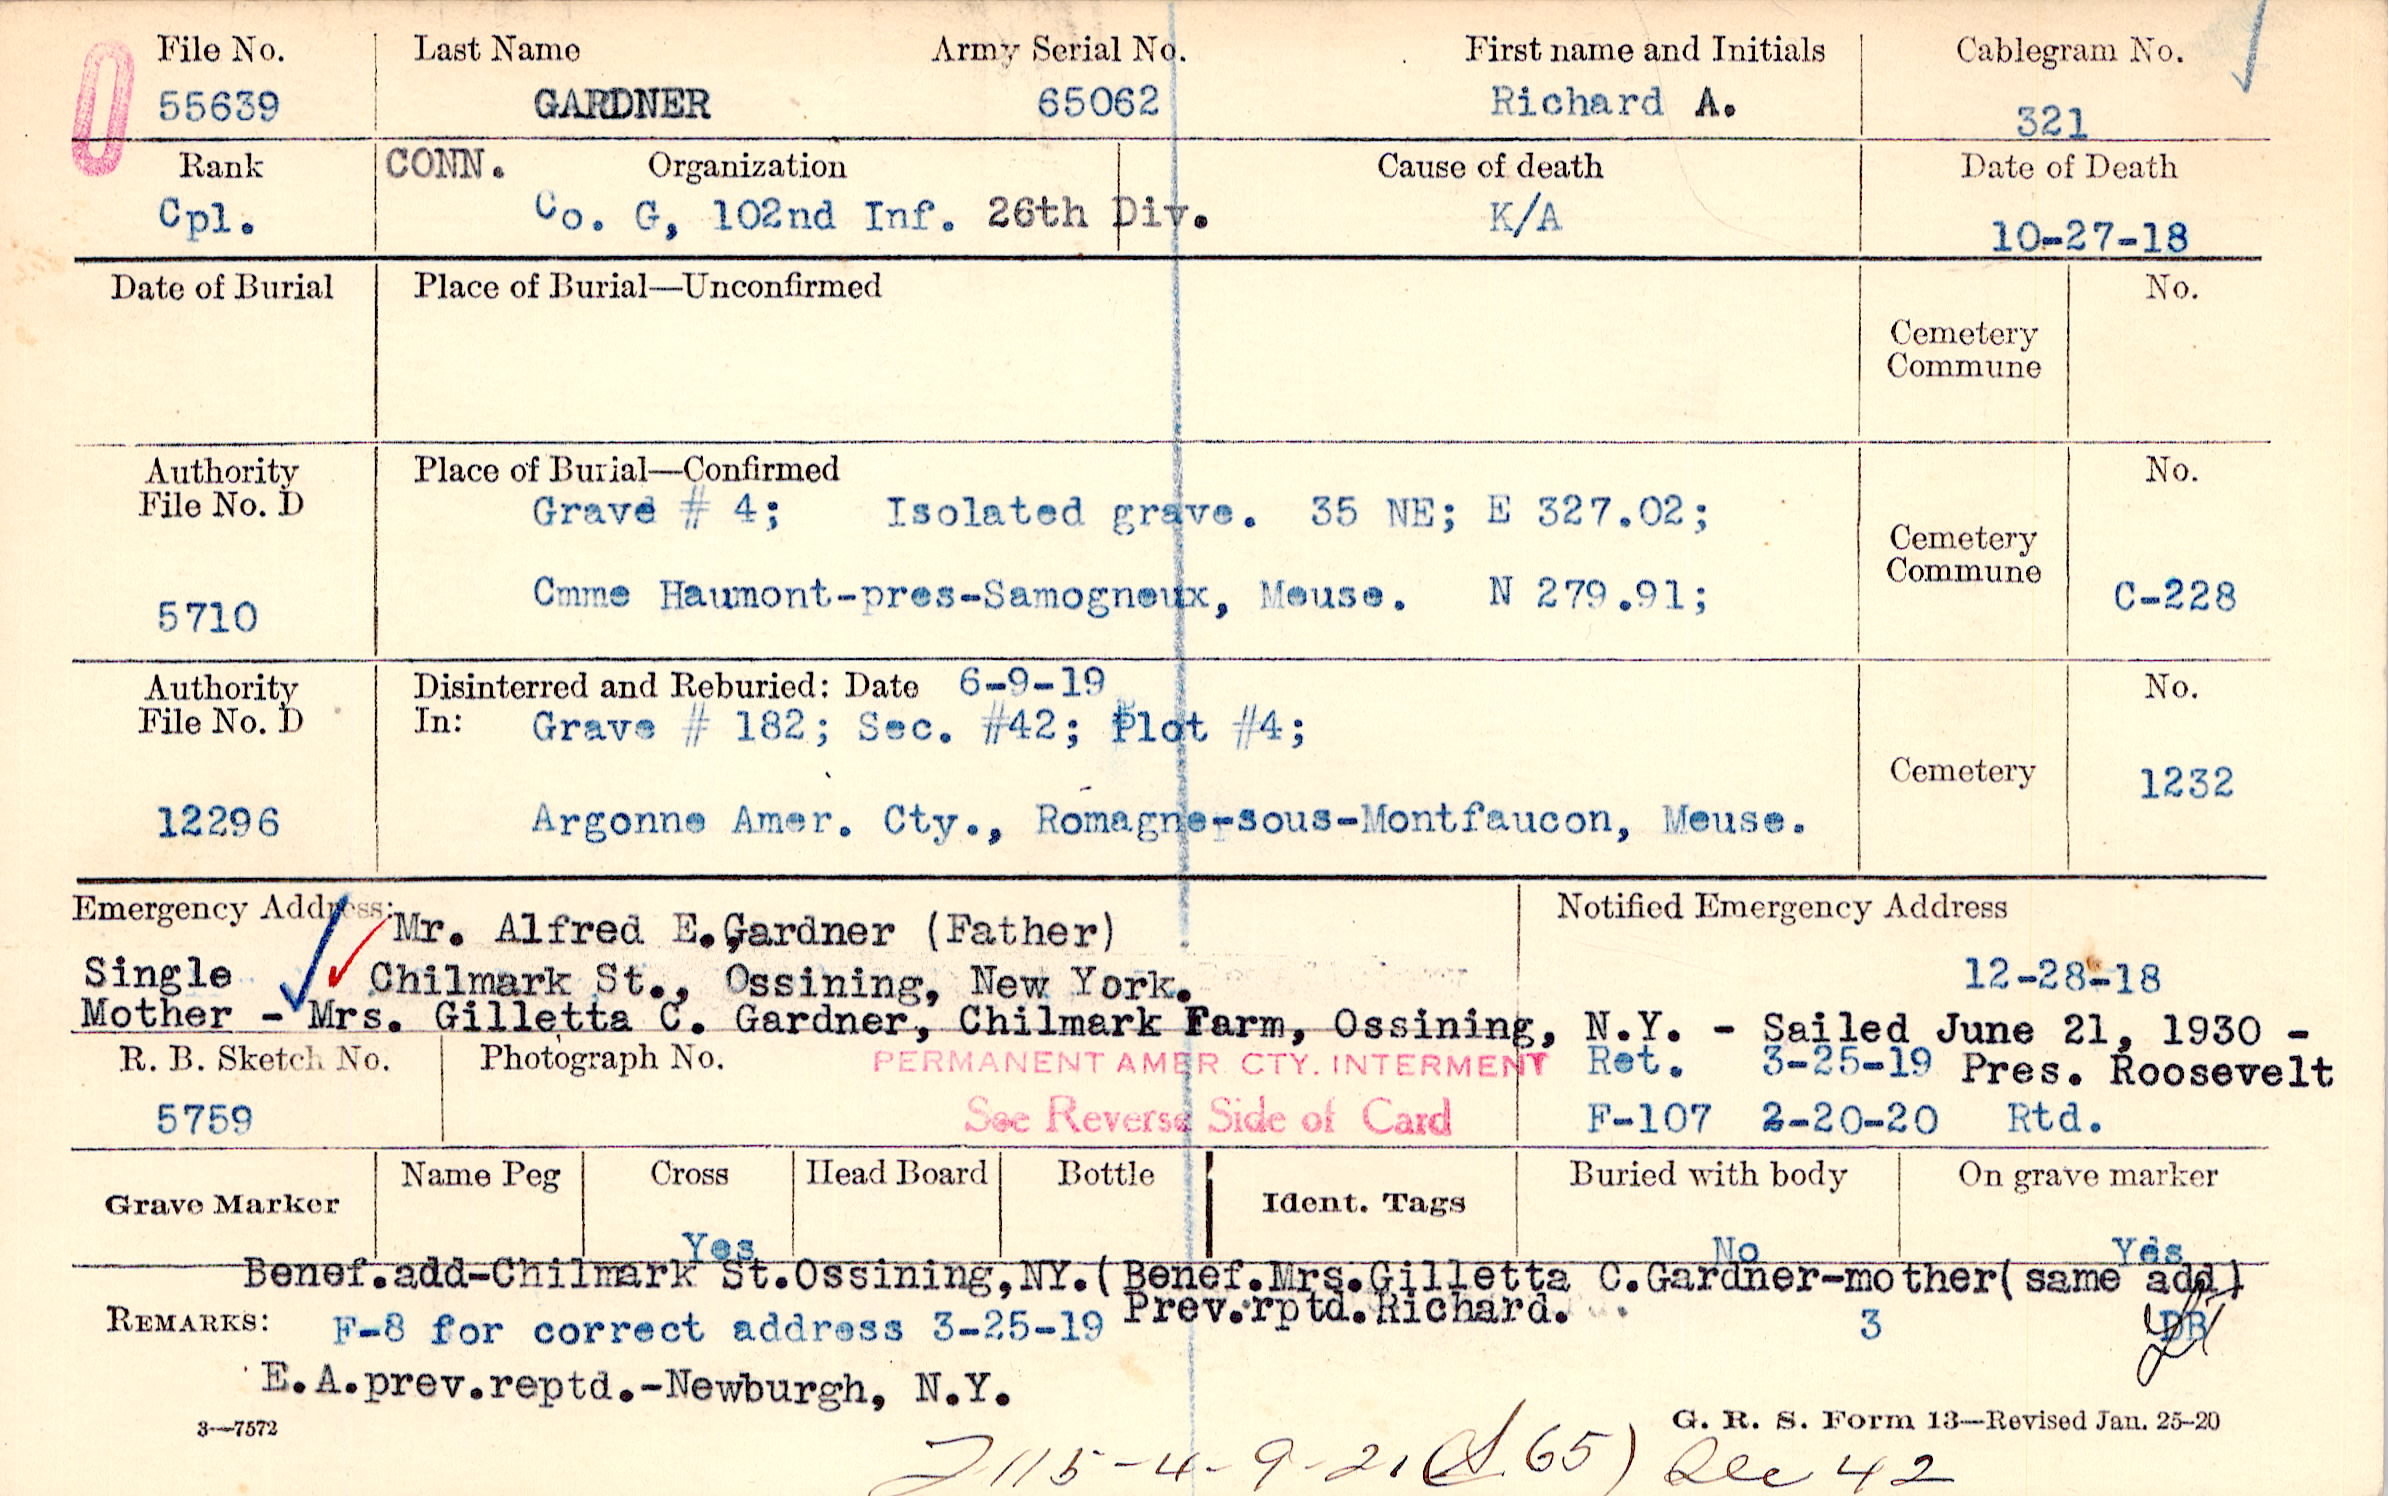 File No. Last Name Army Serial No. First name and Initials Cablegram No.
55639 GARDNER 65062 Richard A. 321
Rank CONN. Organization Cause of death Date of Death
Cpl. Co. G, 102nd Inf. 26th Div. K/A 10-27-18
Date of Burial Place of Burial—Unconfirmed No.
Cemetery
Commune
Authority Place of Burial—Confirmed No.
File No. D Grave # 4; Isolated grave. 35 NE; E 327.02;
Cemetery
Commune
5710 Cmme Haumont-pres-Samogneux, Meuse. N 279.91; C-228
Authority Disinterred and Reburied: Date 6-9-19 No.
File No. D In: Grave # 182; Sec. #42; Plot #4;
Cemetery 1232
12296 Argonne Amer. Cty., Romagne-sous-Montfaucon, Meuse.
Emergency Address: Mr. Alfred E. Gardner (Father) Notified Emergency Address
Single Chilmark St., Ossining, New York. 12-28-18
Mother - Mrs. Gilletta C. Gardner, Chilmark Farm, Ossining, N.Y. - Sailed June 21, 1930 -
R. B. Sketch No. Photograph No. PERMANENT AMER. CTY. INTERMENT Ret. 3-25-19 Pres. Roosevelt
5759 See Reverse Side of Card F-107 2-20-20 Rtd.
Grave Marker Name Peg Cross Head Board Bottle Ident. Tags Buried with body On grave marker
Yes No Yes
Benef.add-Chilmark St.Ossining,NY.(Benef.Mrs.Gilletta C.Gardner-mother(same add)
Prev.rptd.Richard.
REMARKS: F-8 for correct address 3-25-19 3 DB
E.A.prev.reptd.-Newburgh, N.Y.
3—7572 G. R. S. Form 13—Revised Jan. 25-20
115-4-9-21 65) Sec 42